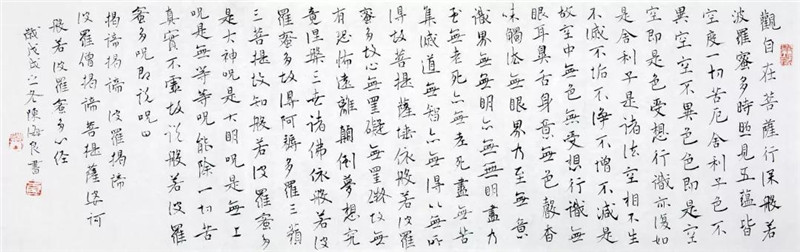 觀自在菩薩行深般若
波羅蜜多時照見五蘊皆
空度一切苦厄舍利子色不
異空空不異色色即是空
空即是色受想行識亦復如
是舍利子是諸法空相不生
不滅不垢不淨不增不減是
故空中無色無受想行識無
眼耳鼻舌身意無色聲香
味觸法無眼界乃至無意
識界無無明亦無無明盡乃
至無老死亦無老死盡無苦
集滅道無智亦無得以無所
得故菩提薩埵依般若波羅
蜜多故心無罣礙無罣礙故無
有恐怖遠離顛倒夢想究
竟涅槃三世諸佛依般若波
羅蜜多故得阿耨多羅三藐
三菩提故知般若波羅蜜多
是大神呪是大明呪是無上
呪是無等等呪能除一切苦
真實不虛故說般若波羅
蜜多呪即說呪曰
揭諦揭諦 波羅揭諦
波羅僧揭諦菩提薩婆訶
般若波羅蜜多心經
歲戊戌之冬陳海良書